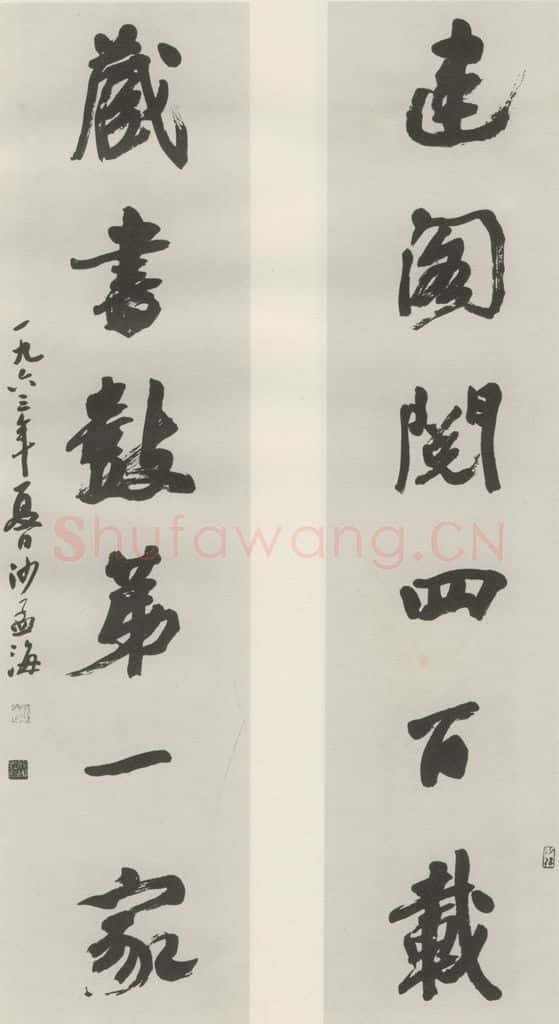 建閣閱四百載
藏書數第一家
一九六三年夏日沙孟海
Shufawang.CN